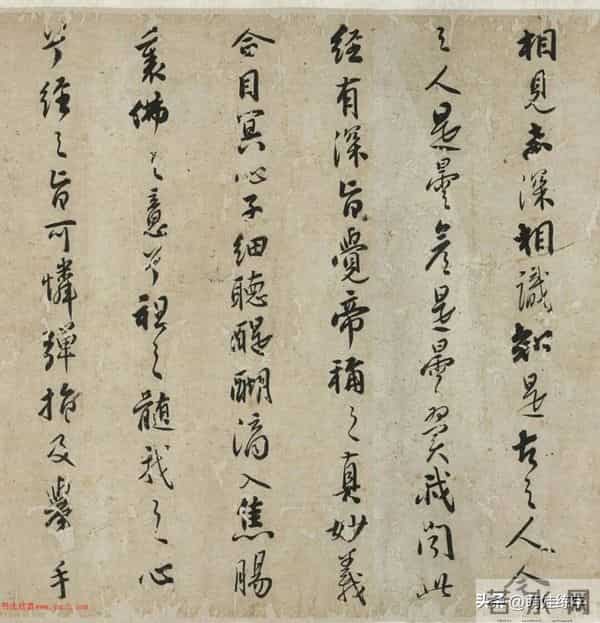 相見深相識知是古之人今
之人是曇彥是曇翼我聞此
經有深旨覺帝稱之真妙義
合目冥心子細聽醍醐滴入焦腸
裏佛之意兮祖之髓我之心
兮經之旨可憐彈指及舉手
头条